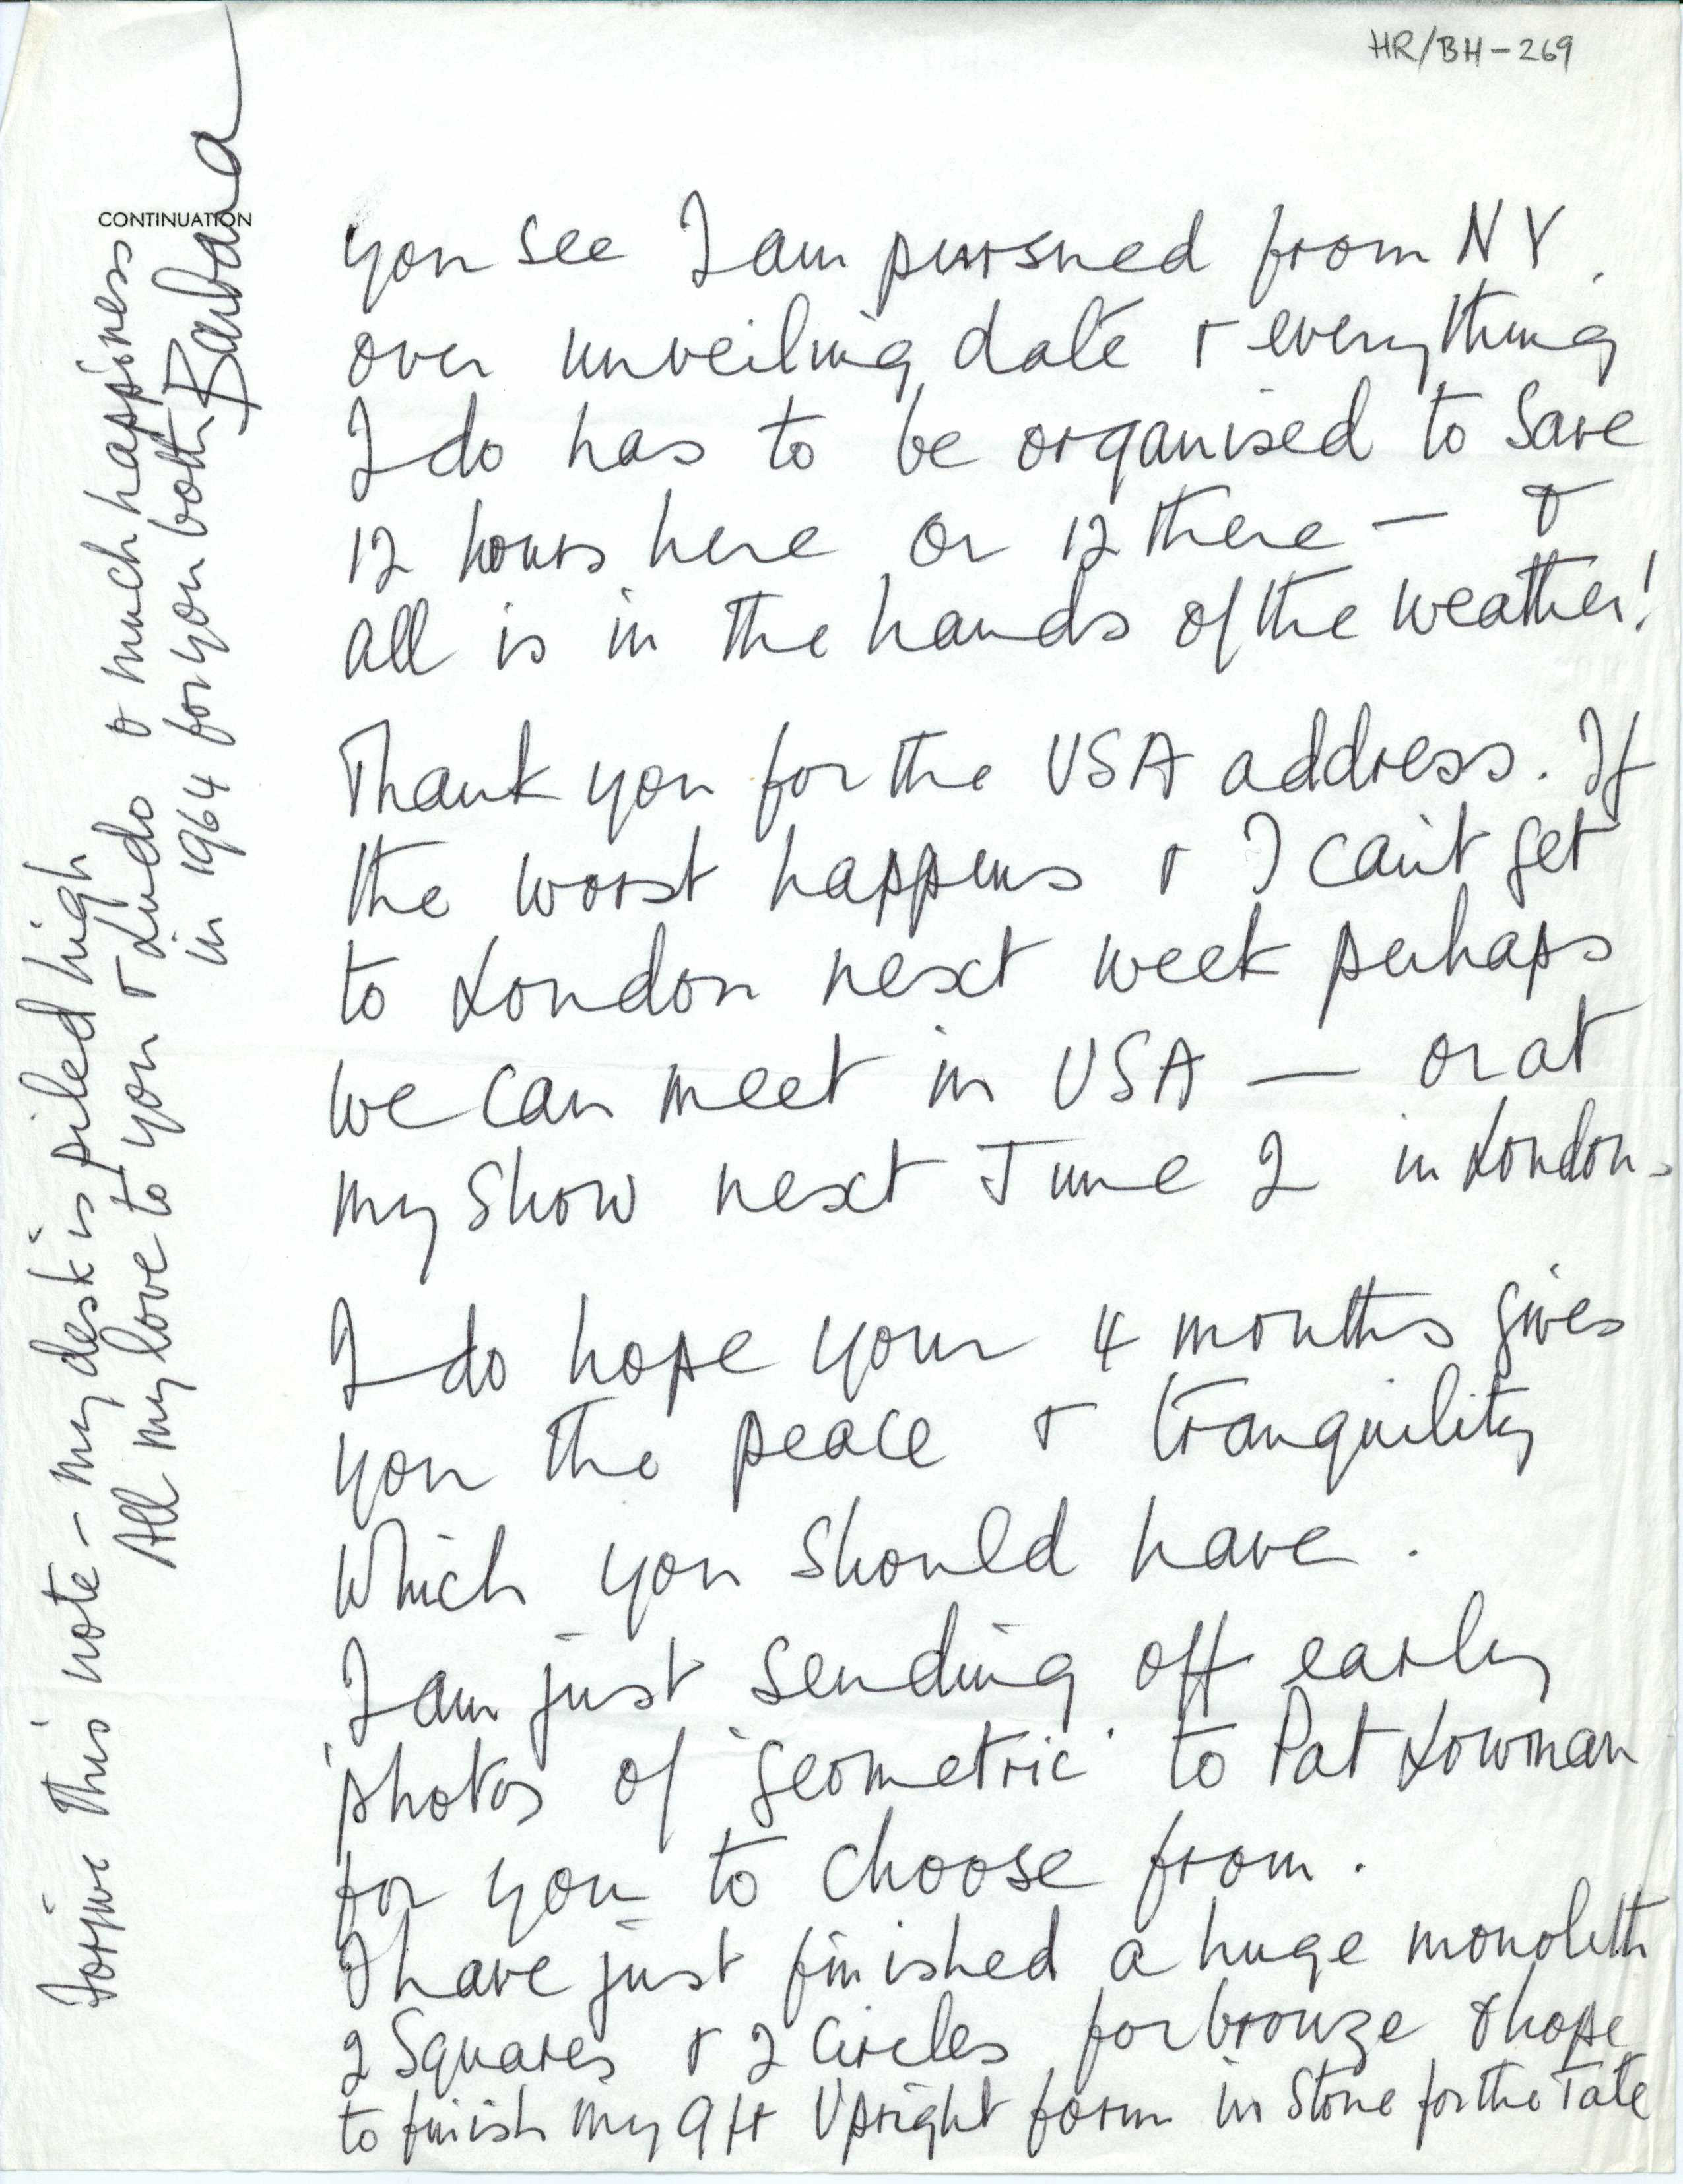 HR/BH-269
CONTINUATION
you see I am pursued from NY.
over unveiling date & everything
I do has to be organised to save
12 hours here or 12 there — &
all is in the hands of the weather!
Thank you for the USA address. If
the worst happens & I can't get
to London next week perhaps
we can meet in USA — or at
my show next June 2 in London.
I do hope your 4 months gives
you the peace & tranquility
which you should have.
I am just sending off early
photos of 'geometric' to Pat Lowman
for you to choose from.
I have just finished a huge monolith
2 Squares & 2 Circles for bronze & hope
to finish my 9 ft Upright form in Stone for the Tate
Forgive this note – my desk is piled high
All my love to you & Ludo & much happiness
in 1964 for you both Barbara